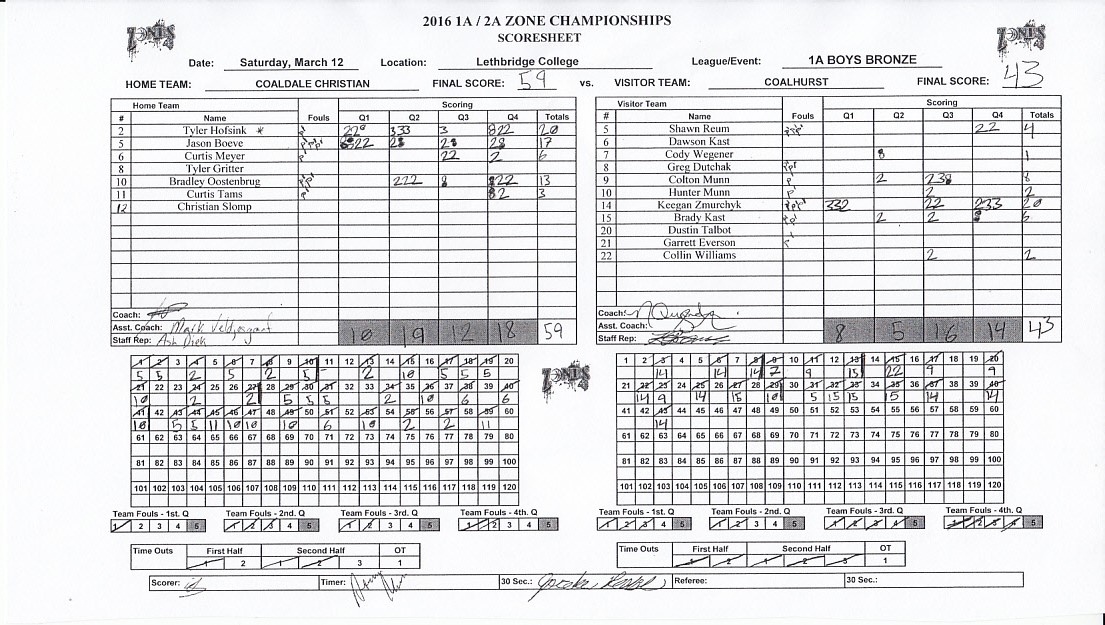 2016 1A / 2A ZONE CHAMPIONSHIPS
SCORESHEET
ZONES
ZONES
Date: Saturday, March 12 Location: Lethbridge College League/Event: 1A BOYS BRONZE
HOME TEAM: COALDALE CHRISTIAN FINAL SCORE: 59 vs. VISITOR TEAM: COALHURST FINAL SCORE: 43
Home Team Scoring
# Name Fouls Q1 Q2 Q3 Q4 Totals
2 Tyler Hofsink * 333 3 20
5 Jason Boeve 17
6 Curtis Meyer 22 2 6
8 Tyler Gritter
10 Bradley Oostenbrug 222 13
11 Curtis Tams 3
12 Christian Slomp
Coach:
Asst. Coach: Mark
Staff Rep:
10 19 12 18 59
Visitor Team Scoring
# Name Fouls Q1 Q2 Q3 Q4 Totals
5 Shawn Reum 22 4
6 Dawson Kast
7 Cody Wegener 1
8 Greg Dutchak
9 Colton Munn 2 8
10 Hunter Munn 2 2
14 Keegan Zmurchyk 332 22 233 20
15 Brady Kast 2 2 6
20 Dustin Talbot
21 Garrett Everson
22 Collin Williams 2 2
Coach:
Asst. Coach:
Staff Rep:
8 5 16 14 43
1 2 3 4 5 6 7 8 9 10 11 12 13 14 15 16 17 18 19 20
5 5 2 5 2 5 2 10 5 5 5
21 22 23 24 25 26 27 28 29 30 31 32 33 34 35 36 37 38 39 40
10 2 2 5 5 5 2 10 6 6
41 42 43 44 45 46 47 48 49 50 51 52 53 54 55 56 57 58 59 60
10 5 5 11 10 10 10 6 10 2 2 11
61 62 63 64 65 66 67 68 69 70 71 72 73 74 75 76 77 78 79 80
81 82 83 84 85 86 87 88 89 90 91 92 93 94 95 96 97 98 99 100
101 102 103 104 105 106 107 108 109 110 111 112 113 114 115 116 117 118 119 120
ZONES
1 2 3 4 5 6 7 8 9 10 11 12 13 14 15 16 17 18 19 20
14 14 14 7 9 15 22 9 9
21 22 23 24 25 26 27 28 29 30 31 32 33 34 35 36 37 38 39 40
14 9 14 15 14 10 5 15 15 15 14 14
41 42 43 44 45 46 47 48 49 50 51 52 53 54 55 56 57 58 59 60
14
61 62 63 64 65 66 67 68 69 70 71 72 73 74 75 76 77 78 79 80
81 82 83 84 85 86 87 88 89 90 91 92 93 94 95 96 97 98 99 100
101 102 103 104 105 106 107 108 109 110 111 112 113 114 115 116 117 118 119 120
Team Fouls - 1st. Q Team Fouls - 2nd. Q Team Fouls - 3rd. Q Team Fouls - 4th. Q
1 2 3 4 5 1 2 3 4 5 1 2 3 4 5 1 2 3 4 5
Team Fouls - 1st. Q Team Fouls - 2nd. Q Team Fouls - 3rd. Q Team Fouls - 4th. Q
1 2 3 4 5 1 2 3 4 5 1 2 3 4 5 1 2 3 4 5
Time Outs First Half Second Half OT
1 2 1 2 3 1
Time Outs First Half Second Half OT
1 2 1 2 3 1
Scorer: Timer: 30 Sec.: Referee: 30 Sec.: